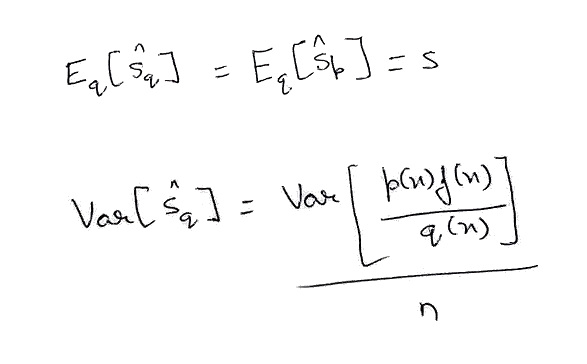 E_q[ŝ_q] = E_q[ŝ_p] = s
Var[ŝ_q] = Var[p(x)f(x)/q(x)]/n